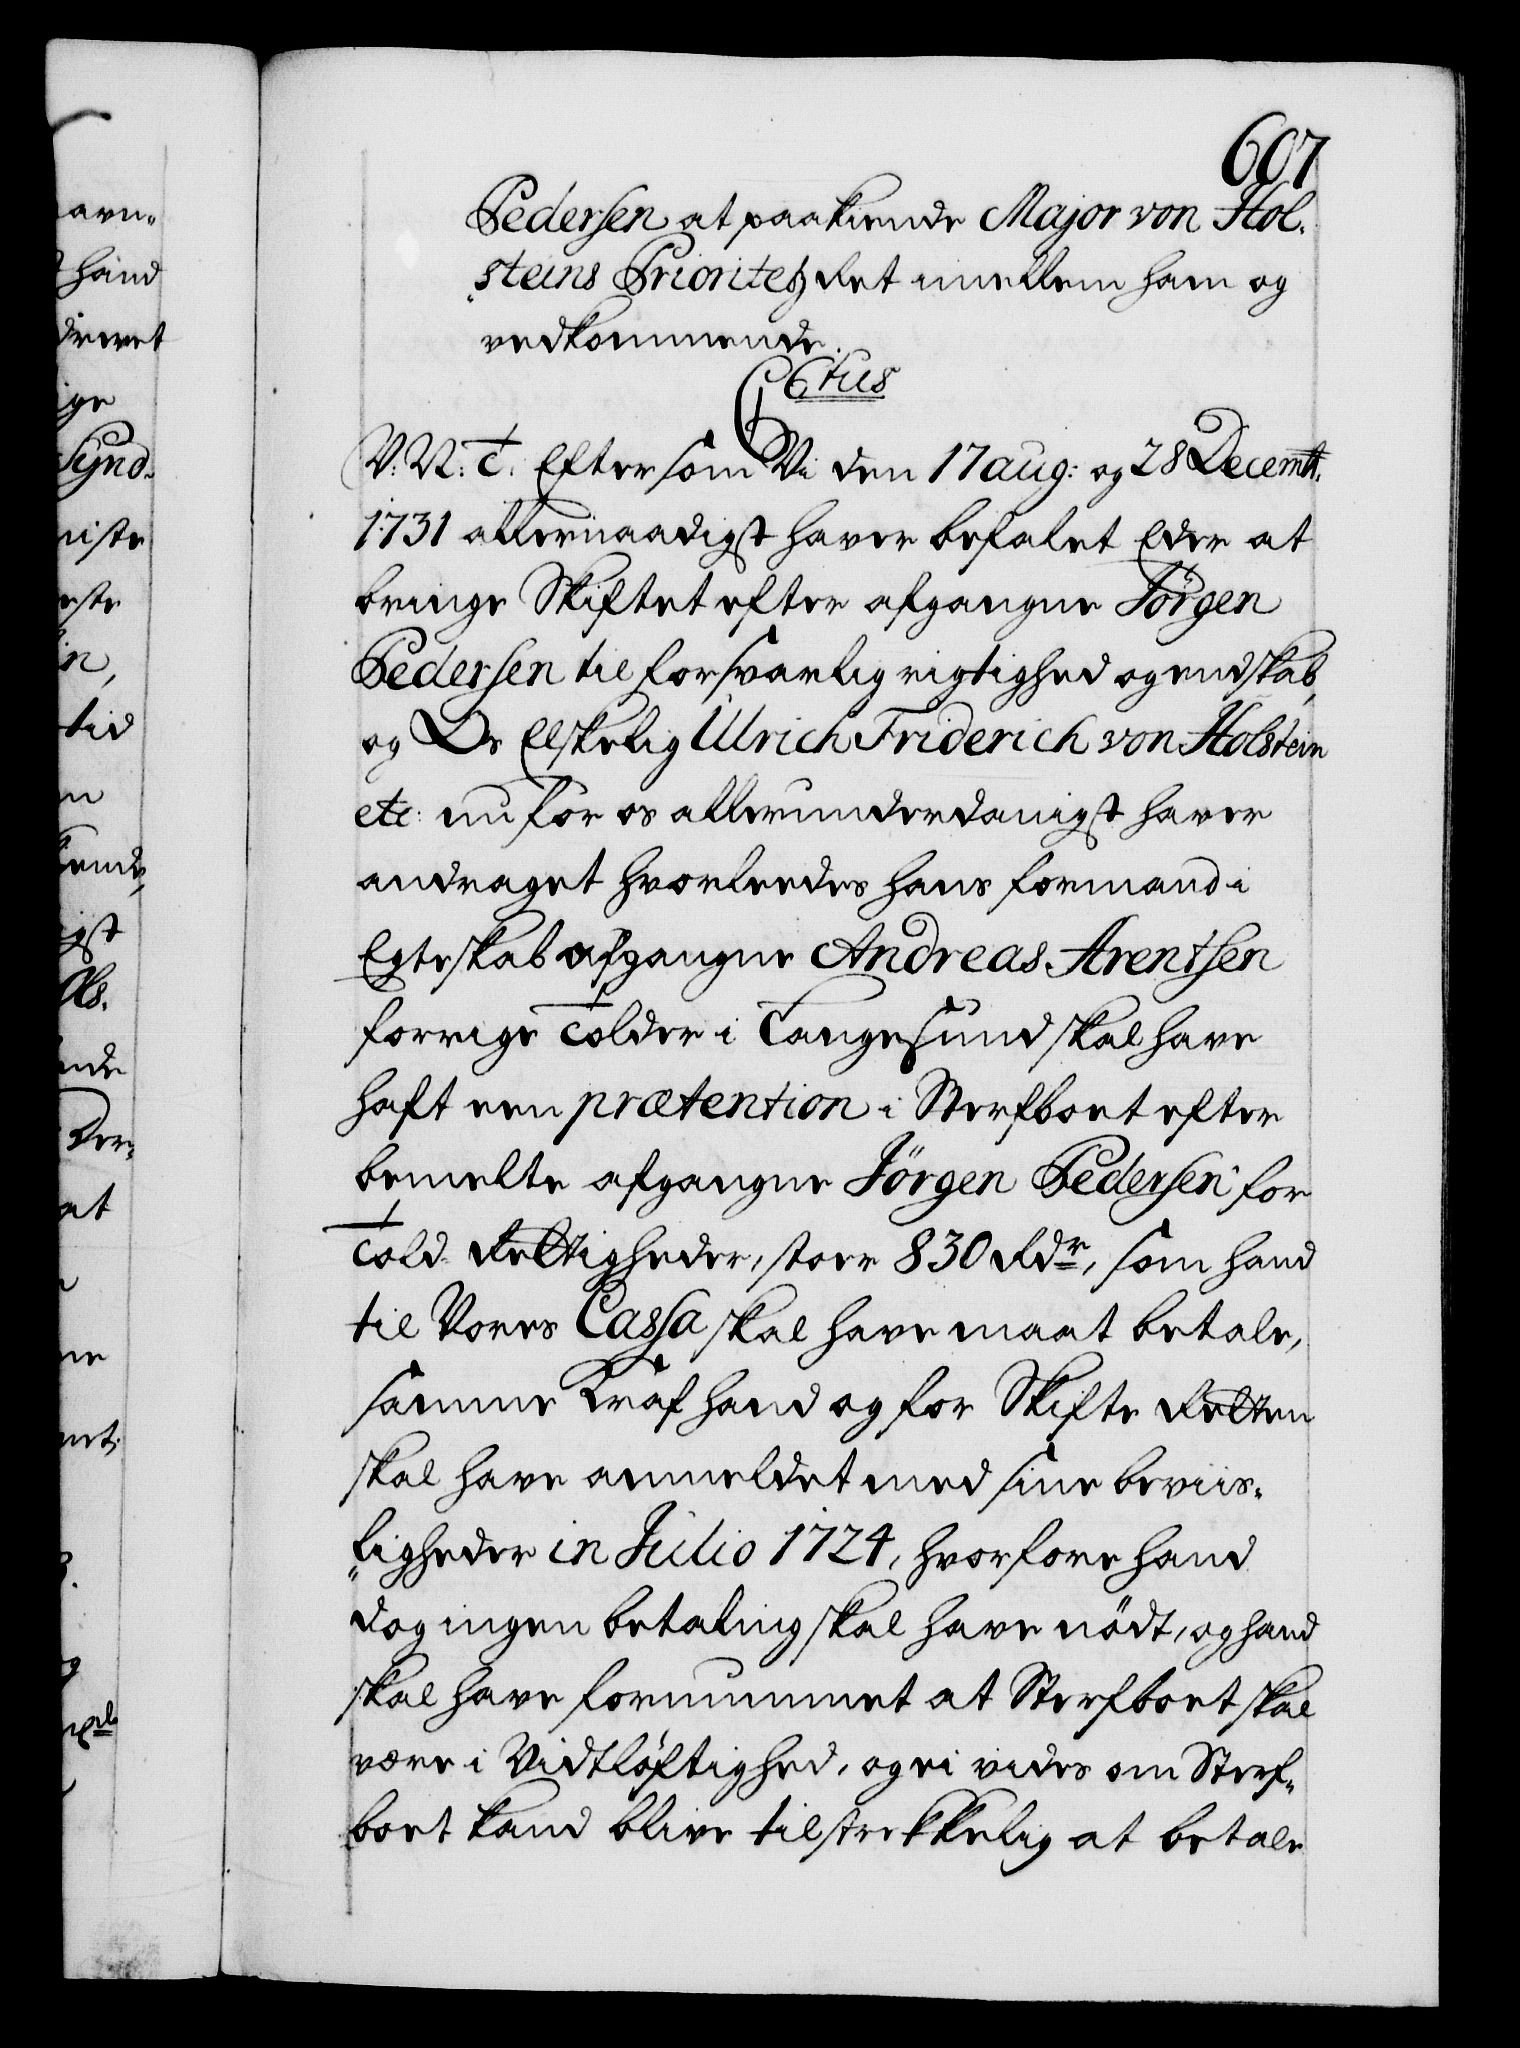 607
Pedersen at paakiende Major von Hol-
steins Prioritetz Ret imellem ham og
vedkommende.
C6tus
V: N: T: Eftersom Vi den 17 aug: og 28 Decembr.
1731 allernaadigst haver befalet Eder at
bringe Skiftet efter afgangne Jörgen
Pedersen til forsvarlig rigtighed og endskab,
og Os Elskelig Ulrich Friderich von Holstein
etc: nu for os allerunderdanigst haver
andraget hvorleedes hans formand i
Egteskab afgangne Andreas Arentsen
forrige Tolder i Langesund skal have
haft een prætention i Sterfboet efter
bemelte afgangne Jörgen Pedersen for
Told-Rettigheder, stoer 830 Rdr, som hand
til Vores Cassa skal have maat betale,
samme Kraf hand og for Skifte Retten
skal have anmeldet med sine beviis-
ligheder in Julio 1724, hvorfore hand
dog ingen betaling skal have nödt, og hand
skal have fornummet at Sterfboet skal
være i Vidtlöftighed, og ei vides om Sterf-
boet kand blive tilstrekkelig at betale
avn-
hand
drevet
ige
Synd-
niste
este
in,
tid
n
kende,
igst
Ols.
nde
Der-
at
ne
net.
3.
og